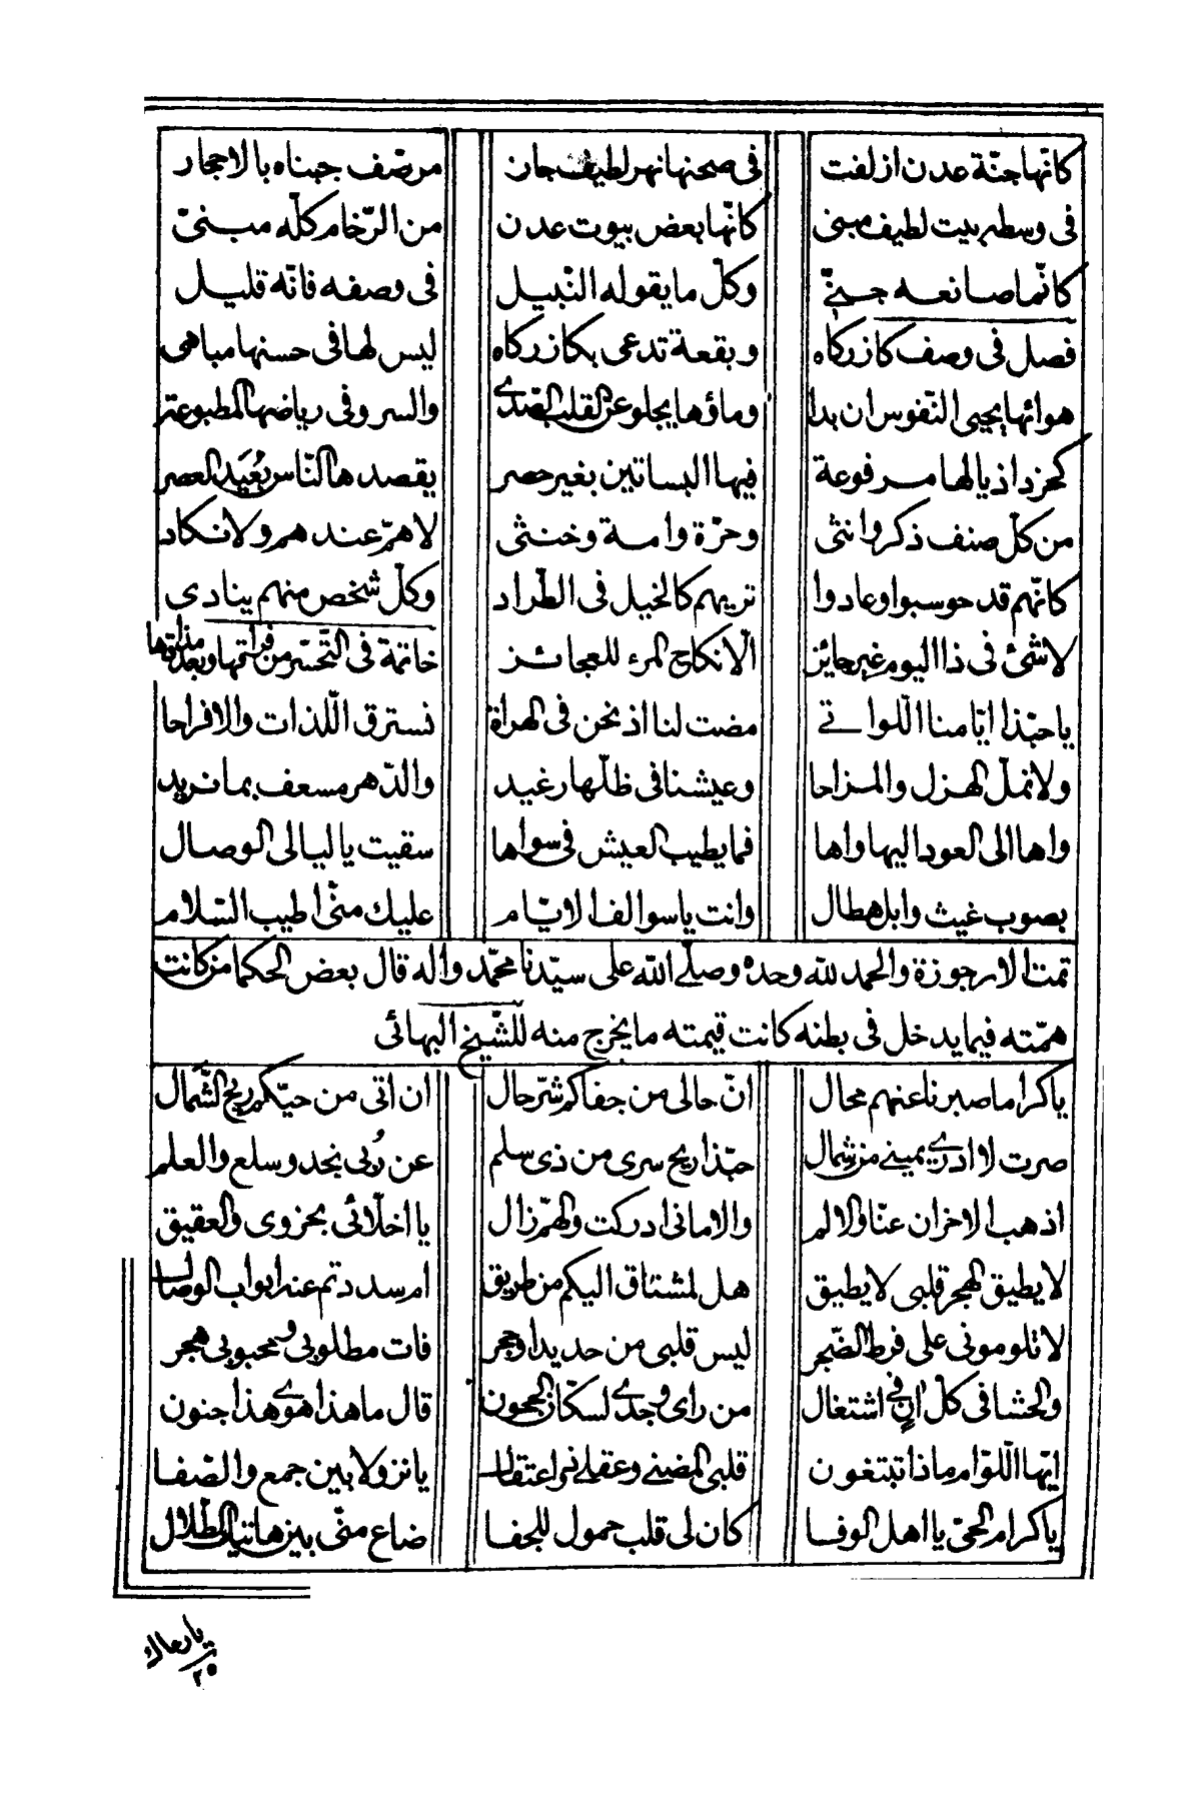 كانّها جنّة عدن ازلفت في صحنها نهر لطيف جار مرصّف جبناه بالاحجار
في وسطه بيت لطيف مبنى كانّها بعض بيوت عدن من الرّخام كلّه مبنىّ
كانّما صانعه جنىّ وكلّ ما يقوله النّبيل فى وصفه فانّه قليل
فصل فى وصف كازركاه وبقعة تدعى بكازركاه ليس لها فى حسنها مباهى
هوائها يحيى النّفوس ان بدا وماؤها يجلو عن القلب الصّدى والسرو فى رياضها المطبوعة
كخرد اذيالها مرفوعة فيها البساتين بغير حصر يقصدها النّاس بُعَيد العصر
من كلّ صنف ذكر وانثى وحرّة وامة وخنثى لا همّ عندهم ولا نكاد
كانّهم قد حوسبوا وعادوا تريهم كالخيل فى الطّراد وكلّ شخص منهم ينادى
لا شئ فى ذا اليوم غير جائز الّا نكاح المرء للعجائز خاتمة فى التّحسّر من فراقها وبعد مذاقها
يا حبّذا ايّامنا اللّواتى مضت لنا اذ نحن فى الهراة نسترق اللّذات والافراحا
ولا نملّ الهزل والمزاحا وعيشنا فى ظلّها رغيد والدّهر مسعف بما نريد
واها الى العود اليها واها فما يطيب العيش فى سواها سقيت يا ليالى الوصال
بصوب غيث وابل هطال وانت يا سوالف الايّام عليك منّى اطيب السّلام
تمت الارجوزة والحمد للّه وحده وصلّى اللّه على سيّدنا محمّد واله قال بعض الحكما من كانت
همّته فيما يدخل فى بطنه كانت قيمته ما يخرج منه للشّيخ البهائى
يا كراما صبرنا عنهم محال انّ حالى من جفاكم شرّ حال ان اتى من حيّكم ريح الشّمال
صرت لا ادرى يمينى من شمال حبّذا ريح سرى من ذى سلم عن رُبى نجد وسلع والعلم
اذهب الاحزان عنّا والالم والامانى ادركت والهمّ زال يا اخلّائى بحزوى والعقيق
لا يطيق الهجر قلبى لا يطيق هل لمشتاق اليكم من طريق ام سددتم عنه ابواب الوصال
لا تلومونى على فرط الضّجر ليس قلبى من حديد او حجر فات مطلوبى ومحبوبى هجر
والحشا فى كلّ ان فى اشتغال من راى وجدى لسكّان الحجون قال ما هذا هوى هذا جنون
ايّها اللّوّام ماذا تبتغون قلبى المضنى وعقلى ذو اعتقال يا نزولا بين جمع والصّفا
يا كرام الحىّ يا اهل الوفا كان لى قلب حمول للجفا ضاع منّى بين هاتيك الطّلال